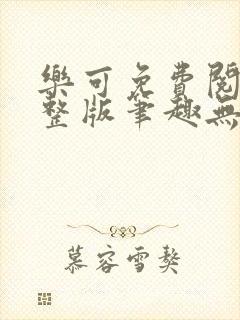 樂可免費閱
整版筆趣無
慕容雪㷫